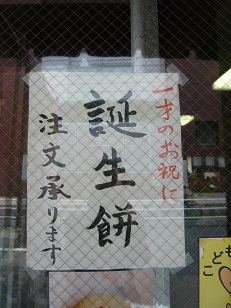 一才のお祝に
誕生餅
注文承ります
こども